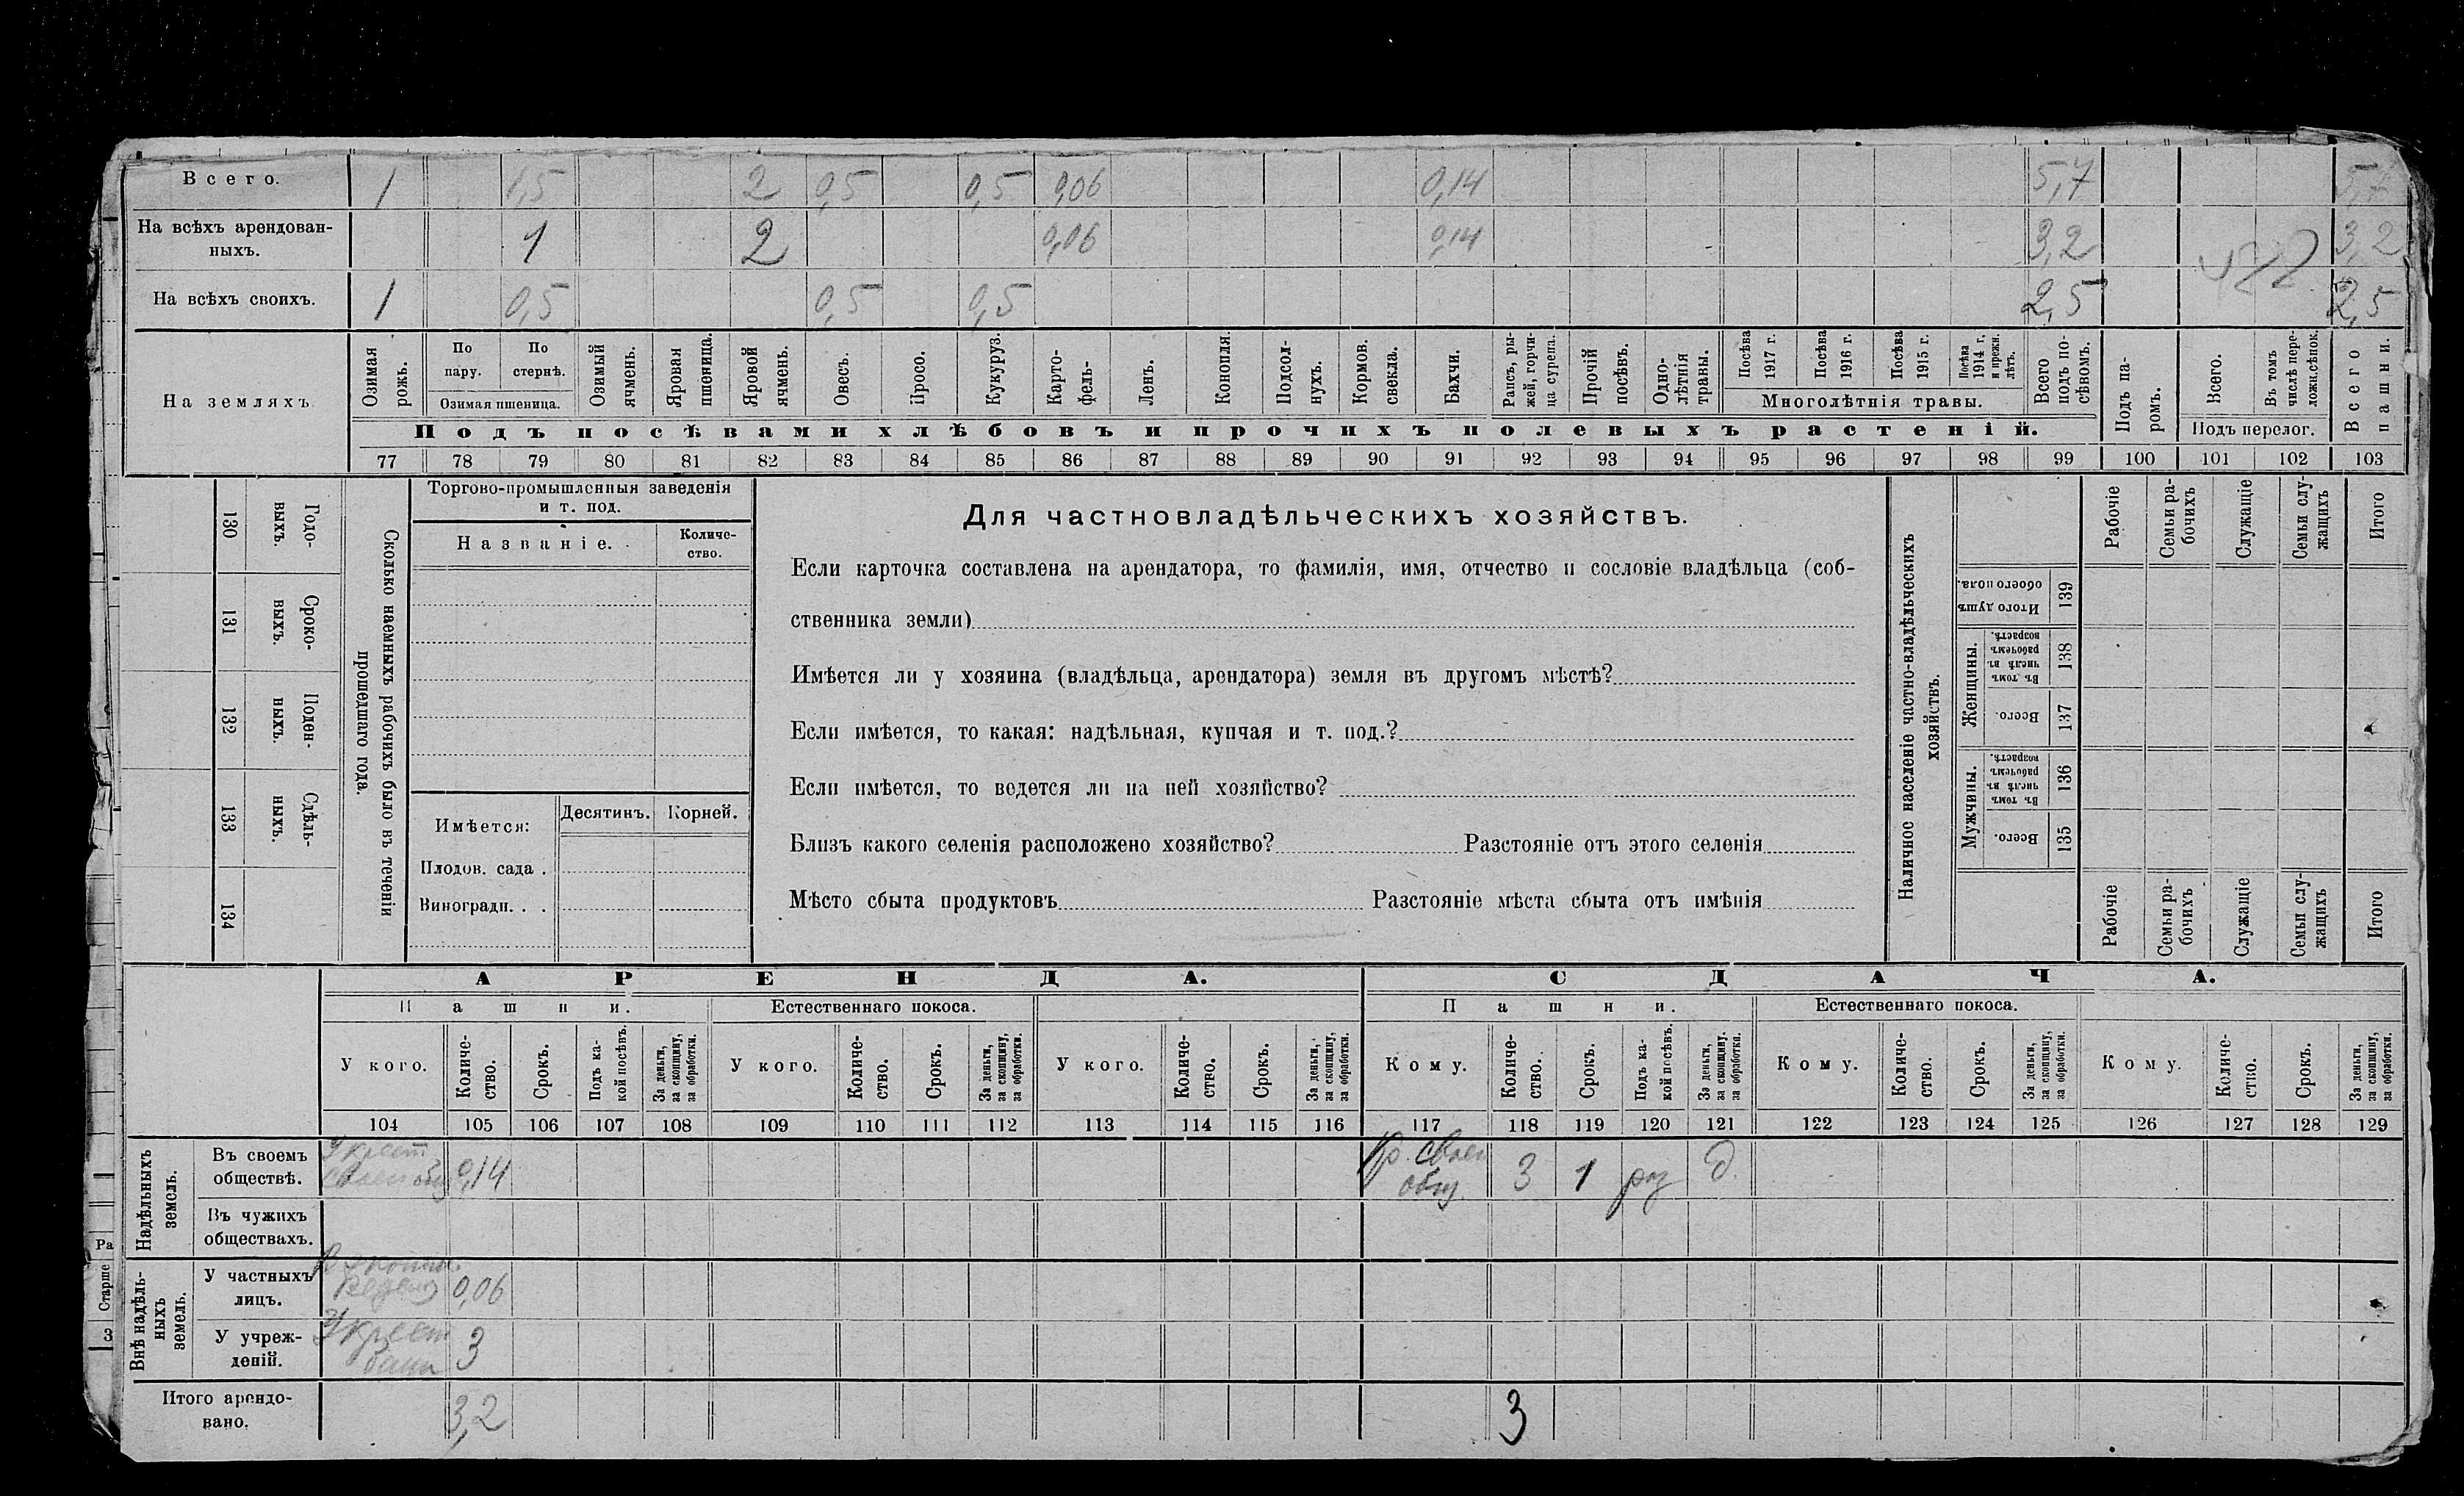 Всего. 1 1,5 2 0,5 0,5 0,06 0,14 5,7 5,7
На всѣхъ арендован-
ныхъ. 1 2 0,06 0,14 3,2 3,2
На всѣхъ своихъ. 1 0,5 0,5 0,5 2,5 2,5
На земляхъ
Озимая рожь.
По пару.
По стернѣ.
Озимая пшеница.
Озимый ячмень.
Яровая пшеница.
Яровой ячмень.
Овесъ.
Просо.
Кукуруз.
Карто-
фель-
Ленъ.
Конопля.
Подсол-
нухъ.
Кормов. свекла.
Бахчи.
Рапсъ, ры-
жей, горчи-
ца сурепа.
Прочій посѣвъ.
Одно-
лѣтнія травы.
Посѣва 1917 г.
Посѣва 1916 г.
Посѣва 1915 г.
Посѣва 1914 г. и прежн. лѣтъ.
Многолѣтнія травы.
Всего подъ по-
сѣвомъ.
Подъ посѣвами хлѣбовъ и прочихъ полевыхъ растеній.
Подъ па-
ромъ.
Всего.
Въ томъ числѣ пере-
ложн.сѣнок.
Подъ перелог.
Всего пашни.
77 78 79 80 81 82 83 84 85 86 87 88 89 90 91 92 93 94 95 96 97 98 99 100 101 102 103
130 Годо-
выхъ.
131 Сроко-
выхъ.
132 Поден-
ныхъ.
133 Сдѣль-
ныхъ.
134
Сколько наемныхъ рабочихъ было въ теченіи
прошедшаго года.
Торгово-промышленныя заведенія
и т. под.
Названіе.
Количе-
ство.
Имѣется:
Десятинъ.
Корней.
Плодов. сада .
Виноградн. . .
Для частновладѣльческихъ хозяйствъ.
Если карточка составлена на арендатора, то фамилія, имя, отчество и сословіе владѣльца (соб-
ственника земли)
Имѣется ли у хозяина (владѣльца, арендатора) земля въ другомъ мѣстѣ?
Если имѣется, то какая: надѣльная, купчая и т. под.?
Если имѣется, то ведется ли на ней хозяйство?
Близъ какого селенія расположено хозяйство? Разстояніе отъ этого селенія
Мѣсто сбыта продуктовъ Разстояніе мѣста сбыта отъ имѣнія
Наличное населеніе частно-владѣльческихъ
хозяйствъ.
Рабочіе
Семьи ра-
бочихъ
Служащіе
Семьи слу-
жащихъ
Итого
Итого душъ обоего пола. 139
Женщины.
Въ томъ числѣ въ рабочемъ возрастѣ. 138
Всего. 137
Мужчины.
Въ томъ числѣ въ рабочемъ возрастѣ. 136
Всего. 135
Рабочіе
Семьи ра-
бочихъ
Служащіе
Семьи слу-
жащихъ
Итого
АРЕНДА. СДАЧА.
Пашни. Естественнаго покоса. Пашни. Естественнаго покоса.
У кого.
Количе-
ство.
Срокъ.
Подъ ка-
кой посѣвъ.
За деньги, за скопщину, за обработки.
У кого.
Количе-
ство.
Срокъ.
За деньги, за скопщину, за обработки.
У кого.
Количе-
ство.
Срокъ.
За деньги, за скопщину, за обработки.
Кому.
Количе-
ство.
Срокъ.
Подъ ка-
кой посѣвъ.
За деньги, за скопщину. за обработки.
Кому.
Количе-
ство.
Срокъ.
За деньги, за скопщину, за обработки.
Кому.
Количе-
ство.
Срокъ.
За деньги, за скопщину, за обработки.
104 105 106 107 108 109 110 111 112 113 114 115 116 117 118 119 120 121 122 123 124 125 126 127 128 129
Надѣльныхъ
земель.
Въ своемъ
обществѣ.
У крест
своего общ 0,14
Кр. своег
общ 3 1 роз д.
Въ чужихъ
обществахъ.
Внѣ надѣль-
ныхъ
земель.
У частныхъ
лицъ.
0,06
У учреж-
деній.
У Крест
банк 3
Итого арендо-
вано.
3,2 3
Ра
Старше
З